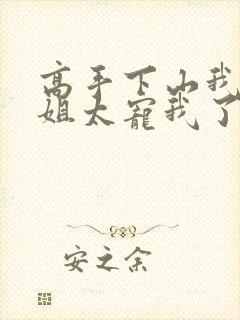 高手下山我
姐太寵我了
安之余